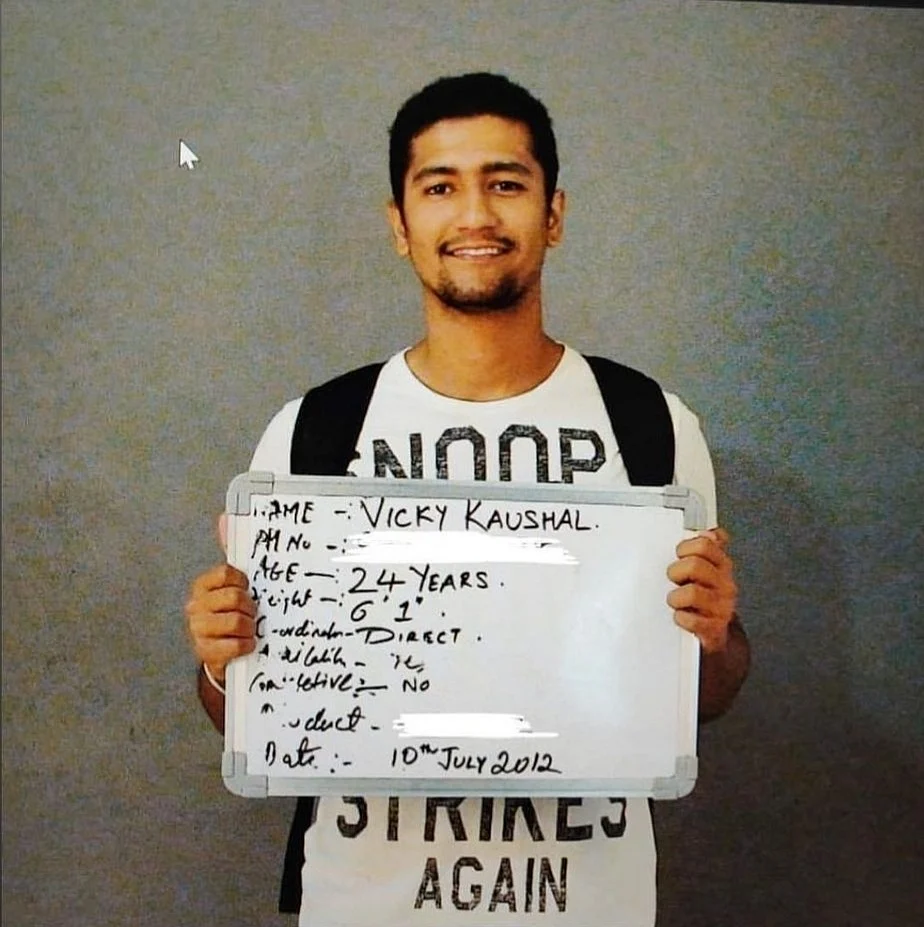 SNOOP
NAME -: VICKY KAUSHAL.
PH No -:
AGE -: 24 YEARS.
Height -: 6' 1".
Co-ordinator - DIRECT.
-
- NO
Product -
Date :- 10th JULY 2012
STRIKES
AGAIN